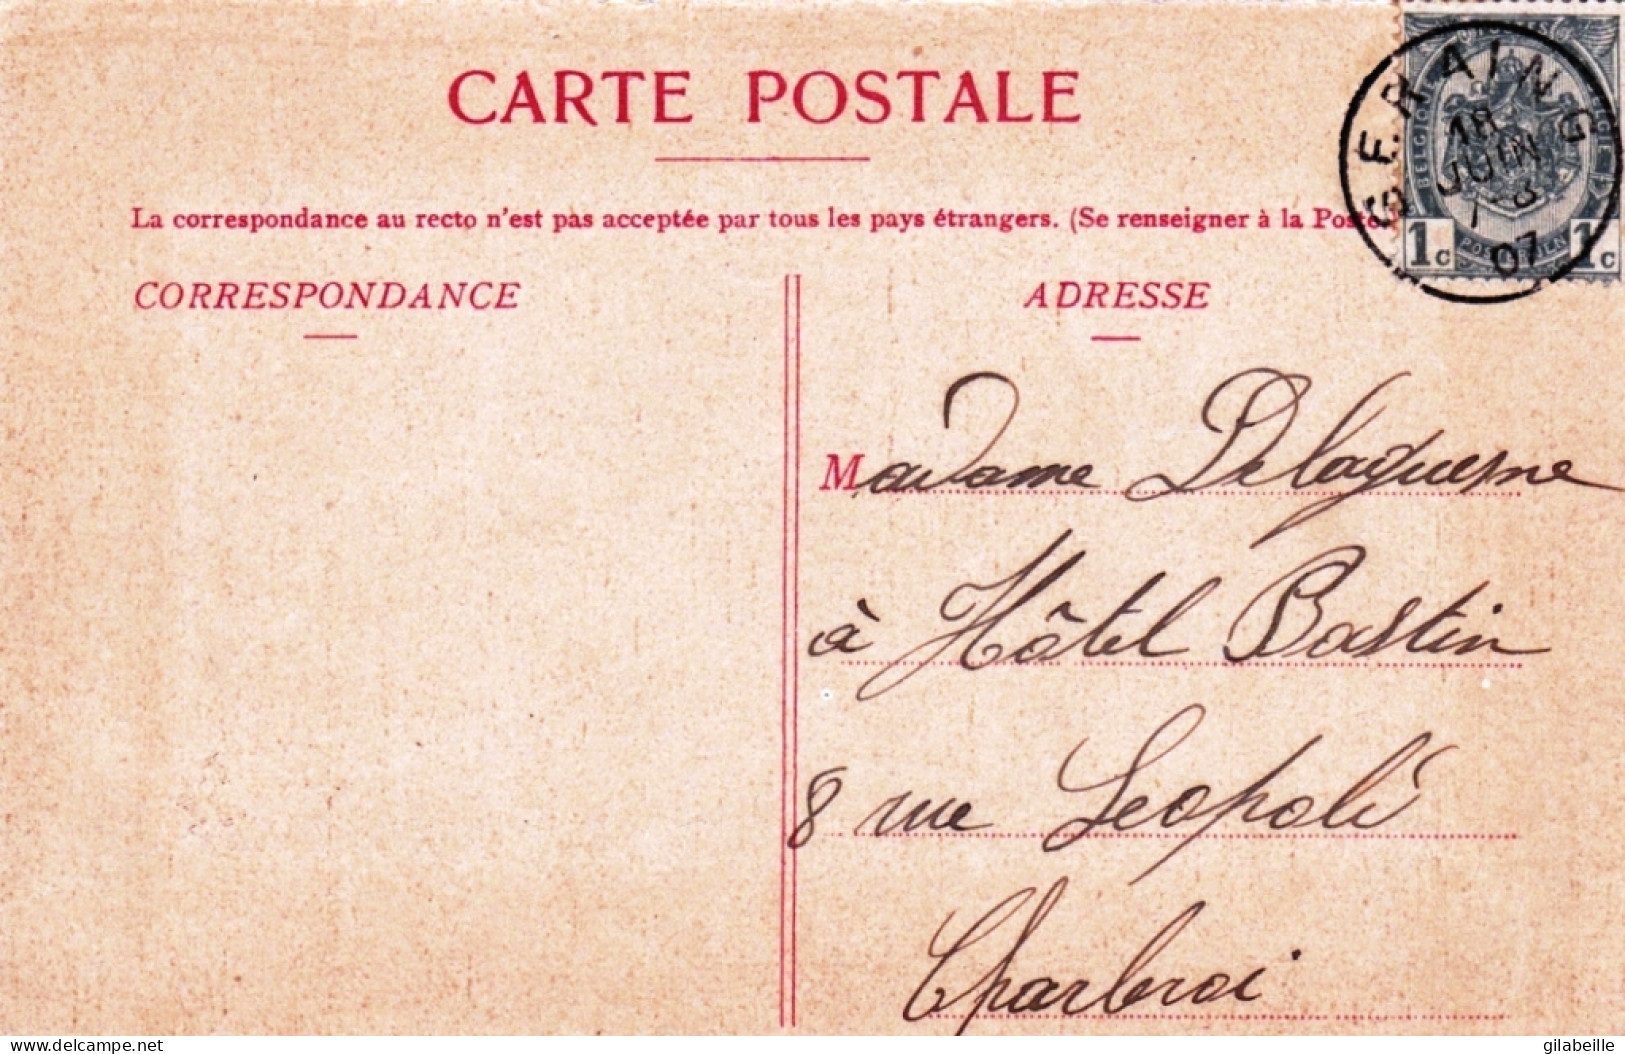 CARTE POSTALE
SERAING
18
JUIN
7-8
07
BELGIQUE
1c 1c
La correspondance au recto n'est pas acceptée par tous les pays étrangers. (Se renseigner à la Poste.)
CORRESPONDANCE
ADRESSE
Madame Delaquesne
à Hôtel Bastin
8 rue Léopold
Charleroi
www.delcampe.net
gilabeille